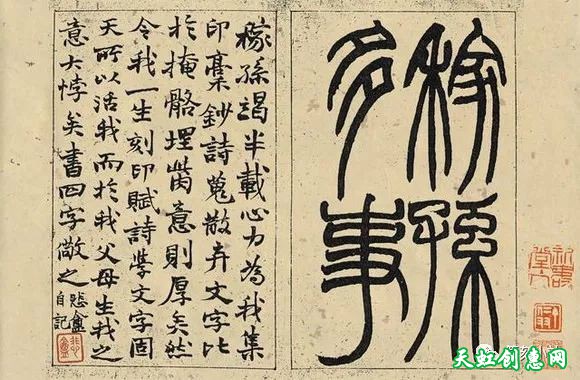 稼孫
多事
稼孫竭半載心力為我集
印稾鈔詩蒐散弃文字比
於掩骼埋胔意則厚矣然
令我一生刻印賦詩學文字固
天所以活我而於我父母生我之
意大悖矣書四字儆之悲盦
自記
悲盦
天虹创意网